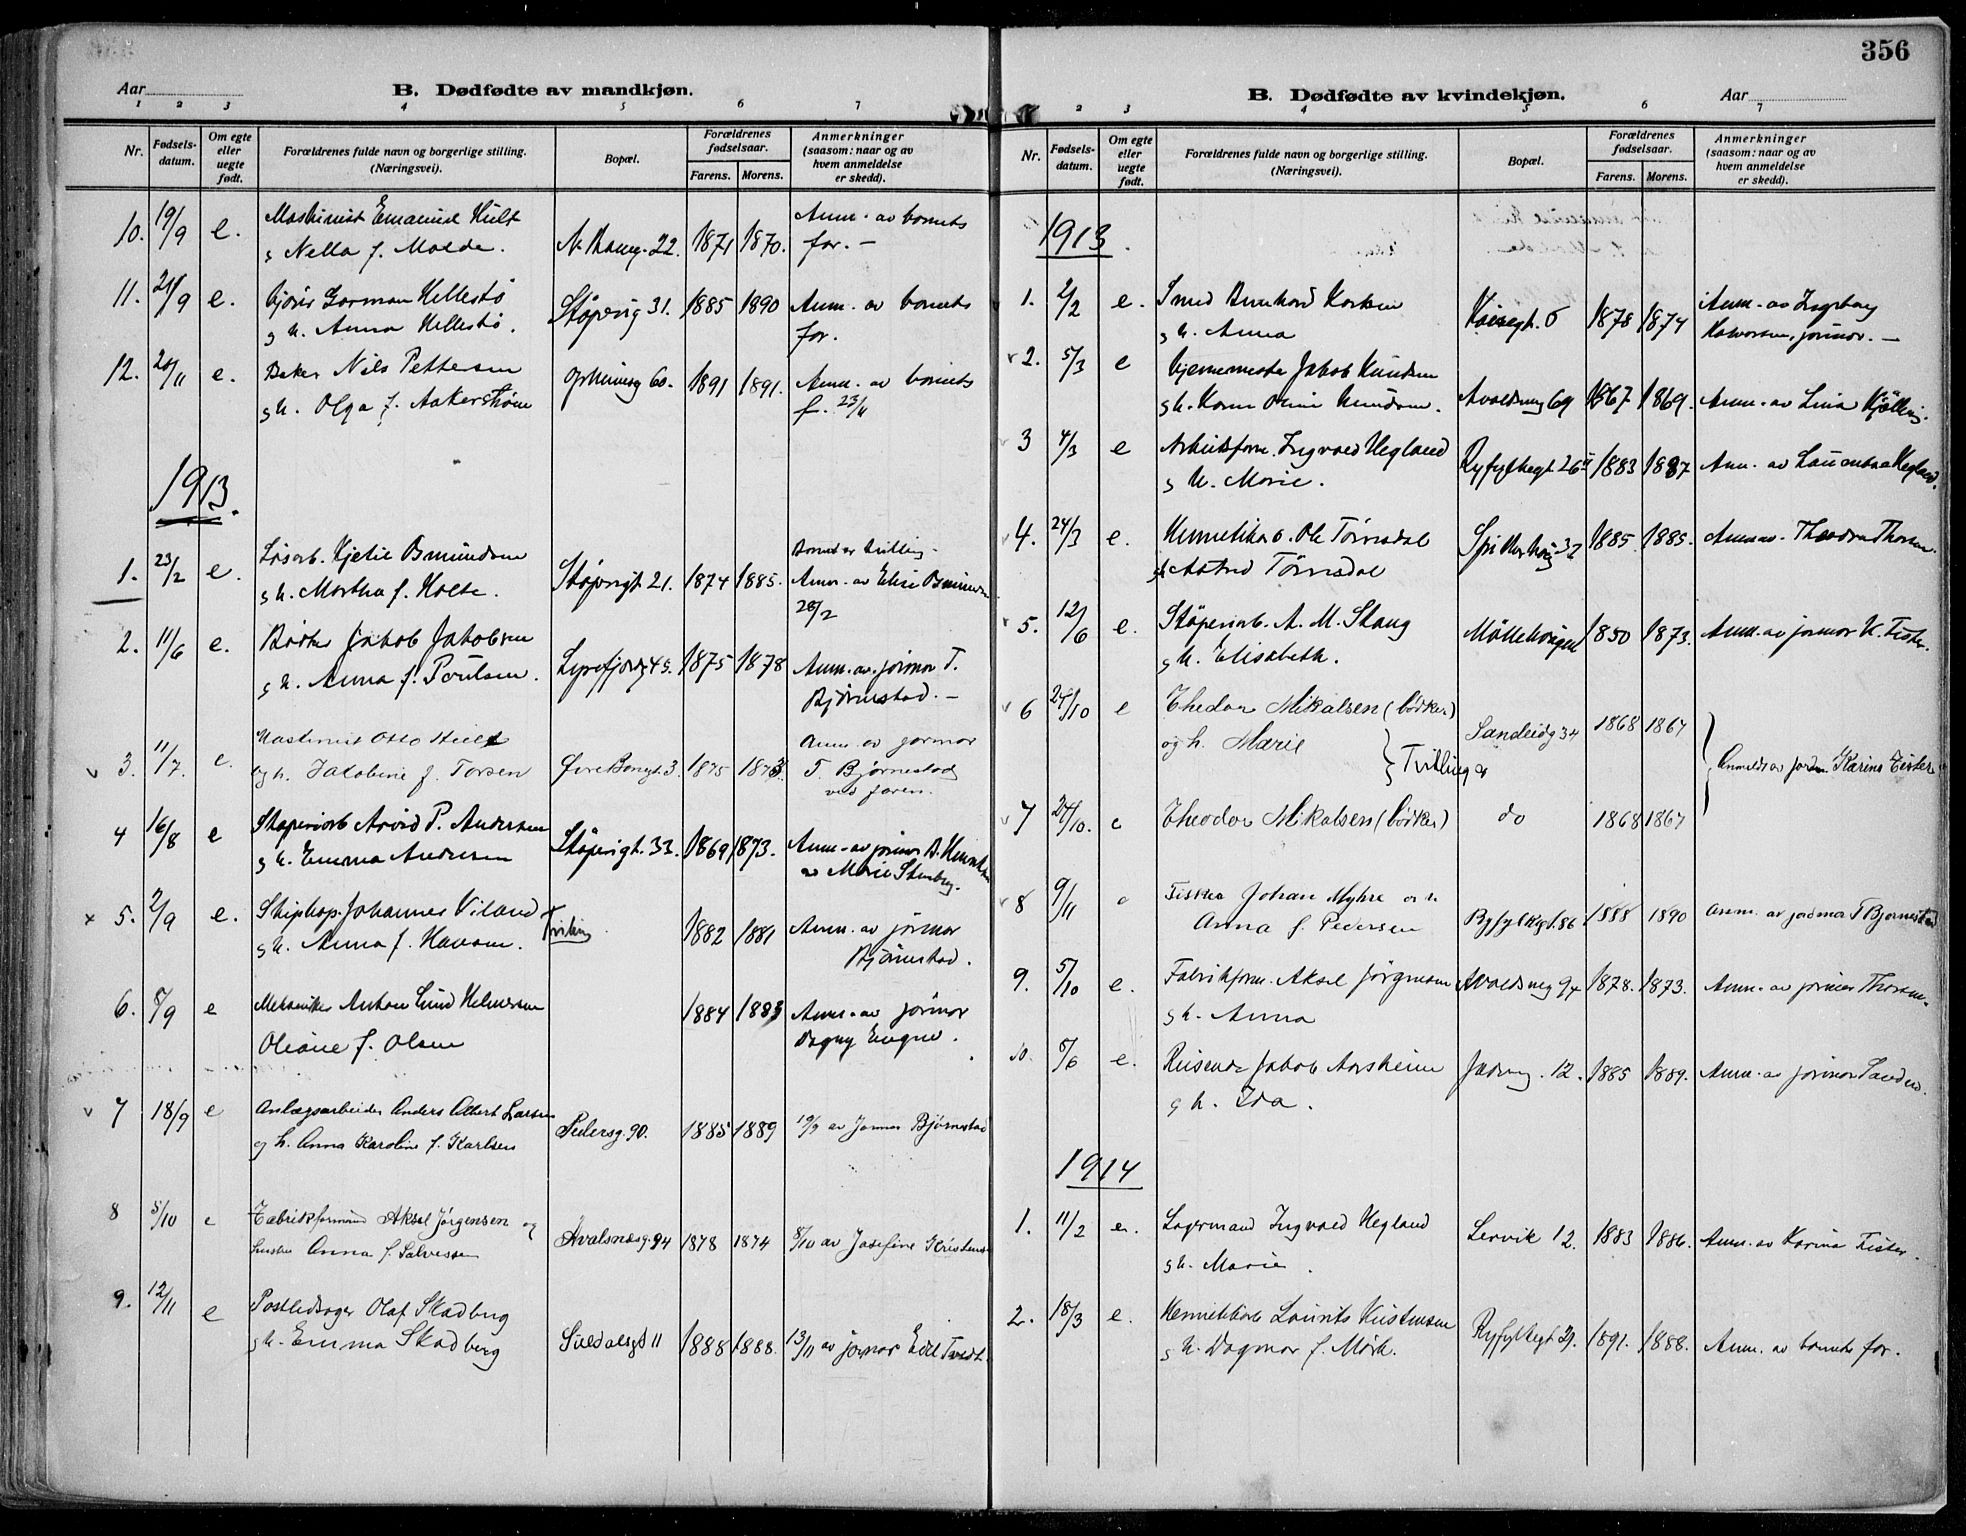 356
Aar
B. Dødfødte av mandkjøn.
1 2 3 4 5 6 7
Nr.
Fødsels-
datum.
Om egte
eller
uegte
født.
Forældrenes fulde navn og borgerlige stilling.
(Næringsvei).
Bopæl.
Forældrenes
fødselsaar.
Farens. Morens.
Anmerkninger
(saasom: naar og av
hvem anmeldelse
er skedd).
10. 19/9 e. Maskinist Emanuel Hult 1871 1870. Anm. av barnets
s Nella f. Molde. 22. far. —
11. 21/9 e. Gorman Hellestø 31. 1885 1890 Anm. av barnets
g h. Anna Hellestø. far.
12. 20/11 e. Baker Nils Pettersen 60. 1891 1891. Anm. av barnets
g h. Olga f. Aakerstrøm f. 23/11
1913.
1. 23/2 e. Løsarb. Kjetil Osmundsen Støperigt. 21. 1874 1885. Barnet er tvilling.
g h. Martha f. Holte. Anm. av Elise Osmundsen
28/2
2. 11/6 e. Bødker Jakob Jakobsen Lysefjordg 45. 1875 1878 Anm. av. jormor T.
g h. Anna f. Poulsen. Bjørnestad. —
3. 11/7. e. Maskinist Otto Hult Øvre Bangt. 3. 1875 1873 Anm. av jormor
og h. Jakobine f. Torsen T. Bjørnestad
ved faren.
4 16/8 e Støperiarb Arvid P. Andersen Støperigt. 33. 1869 1873. Anm. av jormor
g h. Emma Andersen Marie Stenberg.
5. 2/9 e. Johannes Viland Tvilling 1882 1881 Anm. av jormor
g h. Anna f. Bjørnestad.
6. 5/9 e Mekaniker Anton Lund Helmersen 1884 1883 Anm. av jormor
Oliane f. Olsen Dagny
7 18/9 e Anlægsarbeider Anders Albert Larsen Pedersg. 90. 1885 1889 19/9 av Jormor Bjørnestad
og h. Anna Karoline f. Karlsen
8 5/10 e Fabrikformand Aksel Jørgensen og Avalsnæsg. 94 1878 1874 8/10 av Josefine Kristensen
hustru Anna f. Salvesen
9. 12/11 e Postledsager Olaf Skadberg Suldalsgt 11 1888 1888. 13/11 av jormor Edel Tvedt.
g h. Emma Skadberg
B. Dødfødte av kvindekjøn.
Aar
1 2 3 4 5 6 7
Nr.
Fødsels-
datum.
Om egte
eller
uegte
født.
Forældrenes fulde navn og borgerlige stilling.
(Næringsvei).
Bopæl.
Forældrenes
fødselsaar.
Farens. Morens.
Anmerkninger
(saasom: naar og av
hvem anmeldelse
er skedd).
1913.
1. 2/2 e. Smed 6 1878 1874 Anm. av Ingeborg
g h. Anna Halvorsen, jormor. —
2. 5/3 e Jakob Knudsen Avaldsneg 69 1867. 1869. Anm. av Lina
g h. Karen Knudsen.
3 4/3 e Arbeidsform. Ingvald Hegland Ryfylkegt 26 II 1883 1887. Anm. av Laurentse Hegland.
g h. Marie.
4. 24/3 e. Hermetikarb. Ole Tørresdal 32 1885 1885. Anm. av. Theodra Thorsen.
Astrid Tørresdal
5. 12/6 e. Støperiarb. A. M. Stang 1850 1873. Anm. av jormor K. Fister.
g h. Elisabeth.
6 24/10 e Thedor Mikalsen (bødker) Sandeidg 34 1868 1867
og h. Marie } Tvillinger } Anmeldt av jordm. Karine Fister
7 24/10. e Theodor Mikalsen (bødker) do 1868 1867
8 9/11 e Fisker Johan Myhre og h Ryfylkegt. 86 1888 1890 Anm. av jordmor T Bjørnestad
Anna f. Pedersen
9. 5/10 e. Fabrikform. Aksel Jørgensen Avaldsneg 94 1878. 1873. Anm. av jormor Thorsen.
g h. Anna
10. 5/6 e. Reisende Jakob Aarsheim Jædervg. 12. 1885 1889. Anm. av jormor Sandve.
g h. Ida.
1914
1. 11/2 e. Lagermand Ingvald Hegland Lervik 12. 1883 1886. Anm. av Karina Fister.
g h. Marie.
2. 18/3 e. Hermetikkarb Laurits Kristensen Ryfylkegt 1891. 1888. Anm. av barnets far.
g h. Dagmar f. Mørk.